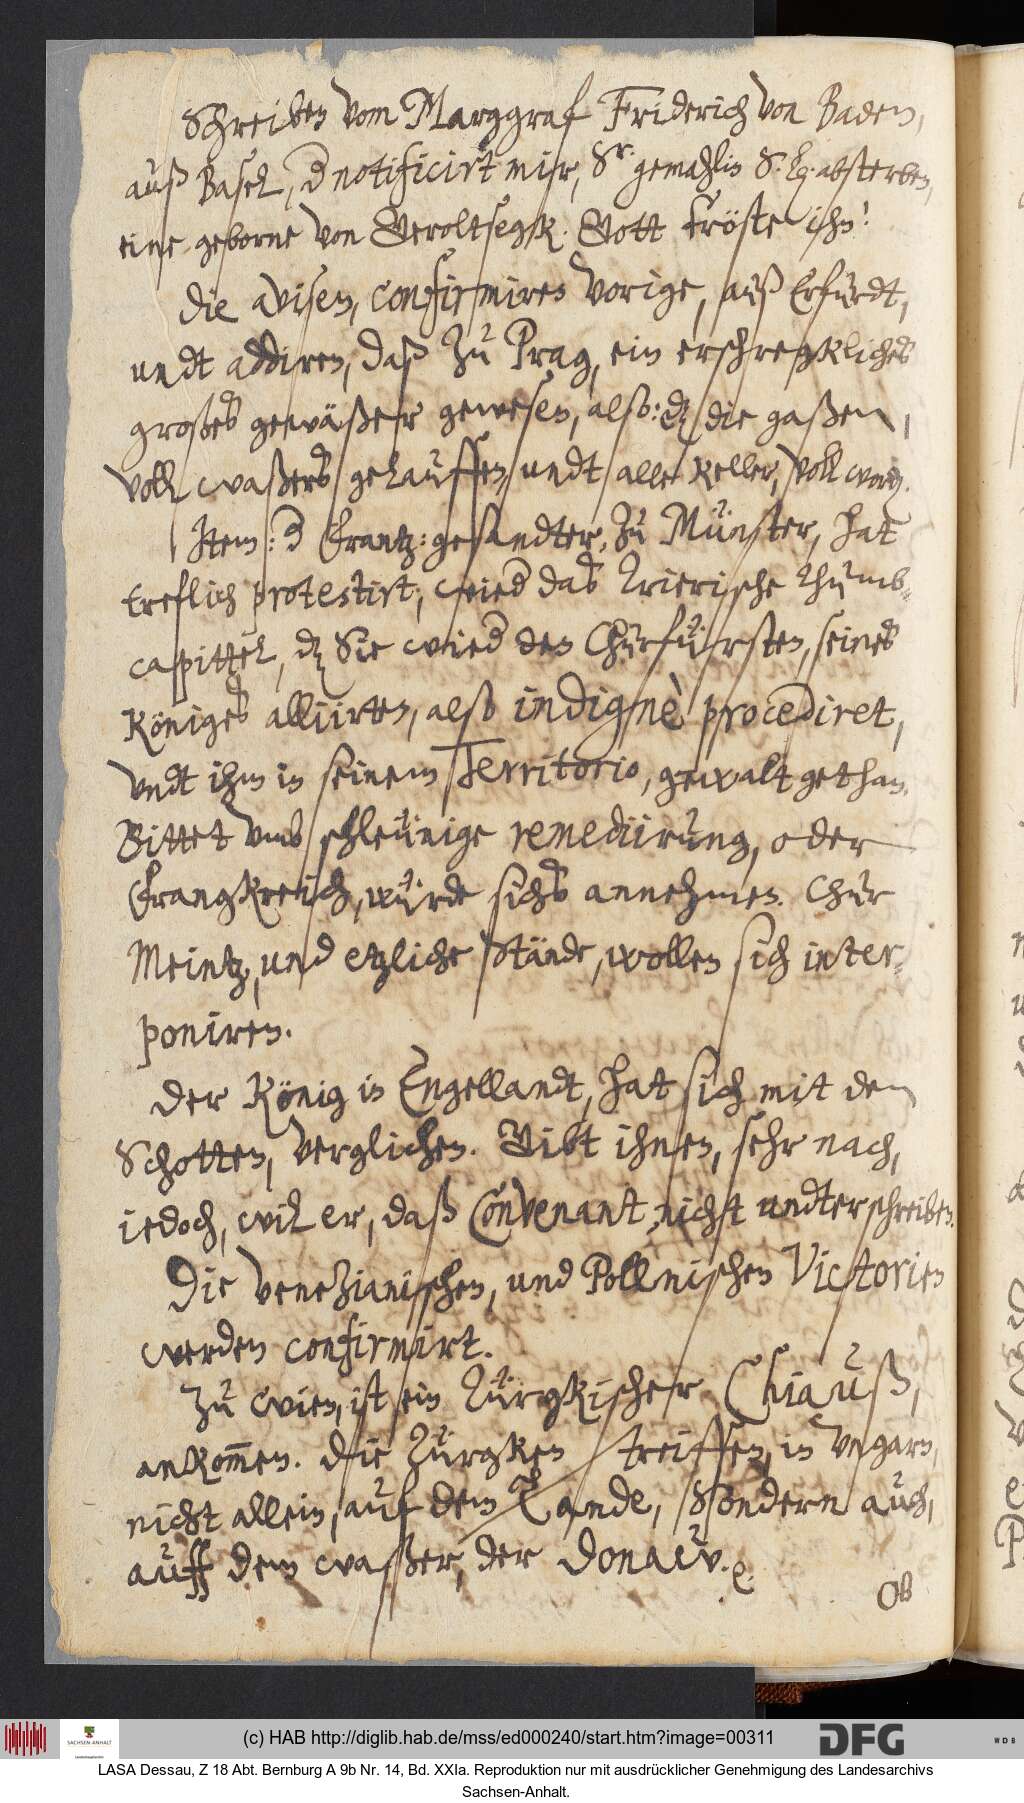 Schreiben vom Marggraf Friderich von Baden,
auß Basel, d notificirt mir, Sr. gemahlin S. Lg. absterben,
eine geborne von Geroltsegk. Gott tröste ihn!
Die avisen, confirmiren vorige, auß Erfurdt,
undt addiren, daß zu Prag, ein erschregkliches
großes gewäßer gewesen, also: dz die gaßen,
voll waßers gelauffen, undt alle keller, voll word.
Item: d Frantz: gesandter, zu Münster, hat
treflich protestirt, wied das Trierische Thumb-
capittel, dz Sie wied den Churfürsten, seines
Königes alliirten, also indignè procediret,
vndt ihm in seinem Territorio, gewalt gethan.
Bittet vmb schleünige remediirung, oder
Frangkreich, würde sichs annehmen. Chur
Meintz, und etzliche Stände, wollen sich inter-
poniren.
Der König in Engellandt, hat sich mit den
Schotten, verglichen. Gibt ihnen, sehr nach,
iedoch, will er, daß Convenant, nicht undterschreiben.
Die Venezianischen, und Pollnischen Victorien
werden confirmirt.
Zu Wien, ist ein Türgkischer Chiauß,
ankommen. Die Türgken treiffen, in Vngarn,
nicht allein, auf dem Lande, sondern auch,
auff dem waßer, der Donaw. e.
Ob
(c) HAB http://diglib.hab.de/mss/ed000240/start.htm?image=00311
SACHSEN-ANHALT
DFG
WDB
LASA Dessau, Z 18 Abt. Bernburg A 9b Nr. 14, Bd. XXIa. Reproduktion nur mit ausdrücklicher Genehmigung des Landesarchivs
Sachsen-Anhalt.